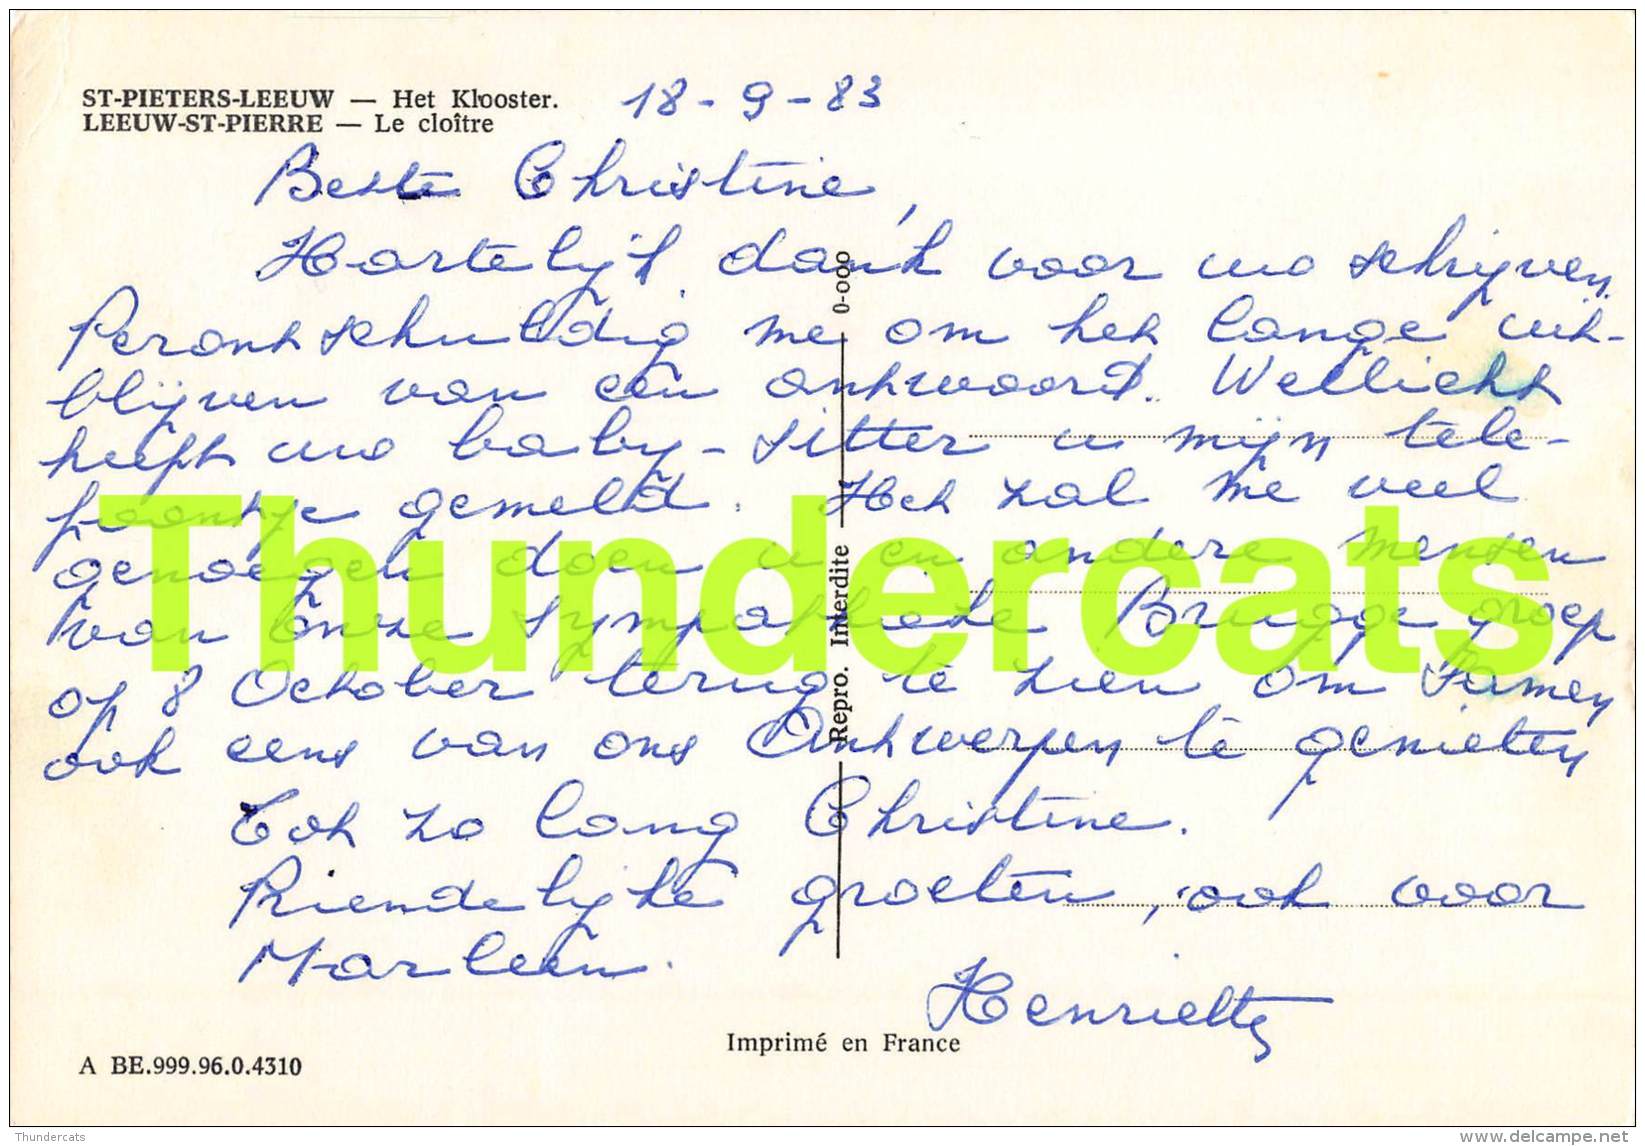 ST-PIETERS-LEEUW — Het Klooster.
LEEUW-ST-PIERRE — Le cloître
18-9-83
Beste Christine,
Hartelijk dank voor uw schrijven.
Verontschuldig me om het lange uit-
blijven van een antwoord. Wellicht
heeft uw baby-sitter u mijn tele-
foontje gemeld. Het zal me veel
genoegen doen u en andere mensen
van onze sympathieke Brugge groep
op 8 October terug te zien om samen
ook eens van ons Antwerpen te genieten
Tot zo lang Christine.
Vriendelijke groeten, ook voor
Marleen.
Henriette
Repro. Interdite — 0-000
Imprimé en France
A BE.999.96.0.4310
Thundercats
Thundercats
delcampe.net